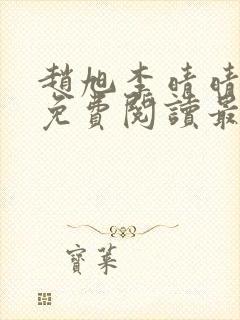 趙旭李晴晴
免費閱讀最
寶萊